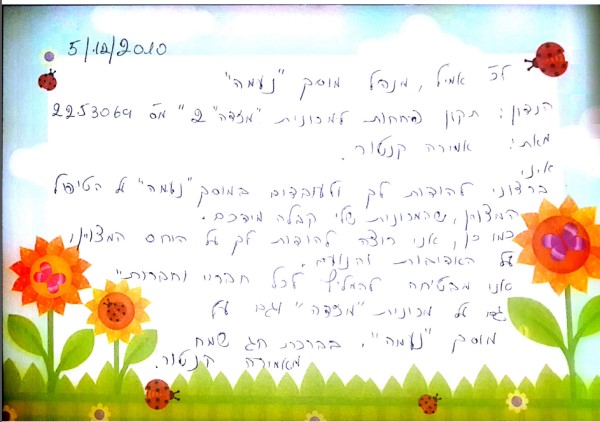 5/12/2010
לכ' אמיל, מנהל מוסך "נעמה"
הנדון: תקון פחחות למכונית "מזדה 2" מס' 2253069
מאת: אמירה קנטור.
א.נ.
ברצוני להודות לך ולעובדים במוסך "נעמה" על הטיפול
המצויין, שהמכונית שלי קבלה מידכם.
כמו כן, אני רוצה להודות לך על היחס המצויין,
על האדיבות והנועם.
אני מבטיחה להמליץ לכל חברי וחברותי
גם על מכונית "מזדה" וגם על
מוסך "נעמה". בברכת חג שמח
מאמירה קנטור.